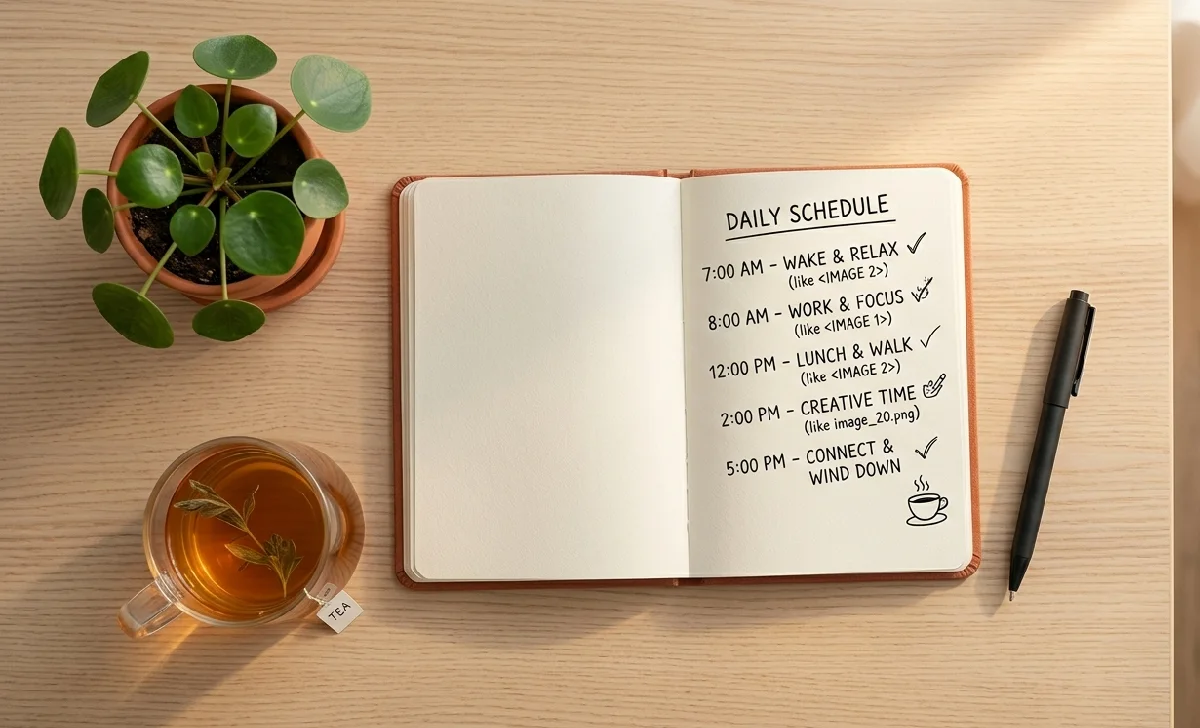 DAILY SCHEDULE
7:00 AM – WAKE & RELAX
(like <IMAGE 2>)
8:00 AM – WORK & FOCUS
(like <IMAGE 1>)
12:00 PM – LUNCH & WALK
(like <IMAGE 2>)
2:00 PM – CREATIVE TIME
(like image_20.png)
5:00 PM – CONNECT &
WIND DOWN
TEA